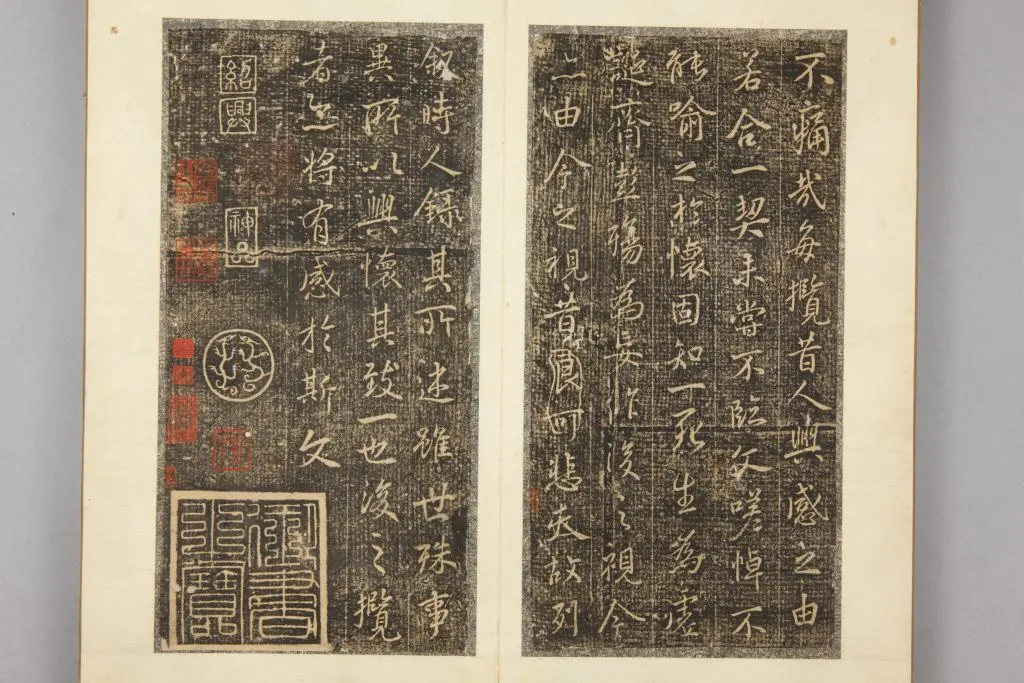 不痛哉每攬昔人興感之由
若合一契未嘗不臨文嗟悼不
能喻之於懷固知一死生為虛
誕齊彭殤為妄作後之視今
亦由今之視昔良可悲夫故列
叙時人錄其所述雖世殊事
異所以興懷其致一也後之攬
者亦將有感於斯文
紹興
神品
御書之寶